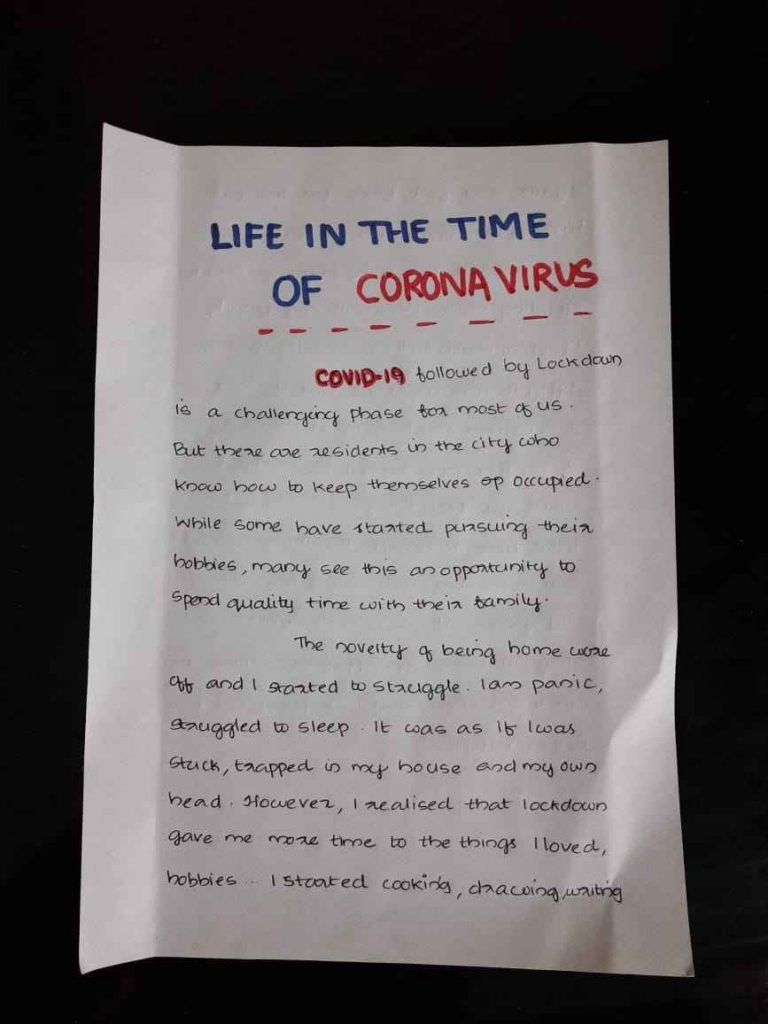 LIFE IN THE TIME
OF CORONA VIRUS
COVID-19 followed by Lockdown
is a challenging phase for most of us.
But there are residents in the city who
know how to keep themselves op occupied.
While some have started pursuing their
hobbies, many see this an opportunity to
spend quality time with their family.
The novelty of being home wore
off and I started to struggle. I am panic,
struggled to sleep. It was as if I was
stuck, trapped in my house and my own
head. However, I realised that lockdown
gave me more time to the things I loved,
hobbies.. I started cooking, drawing, writing